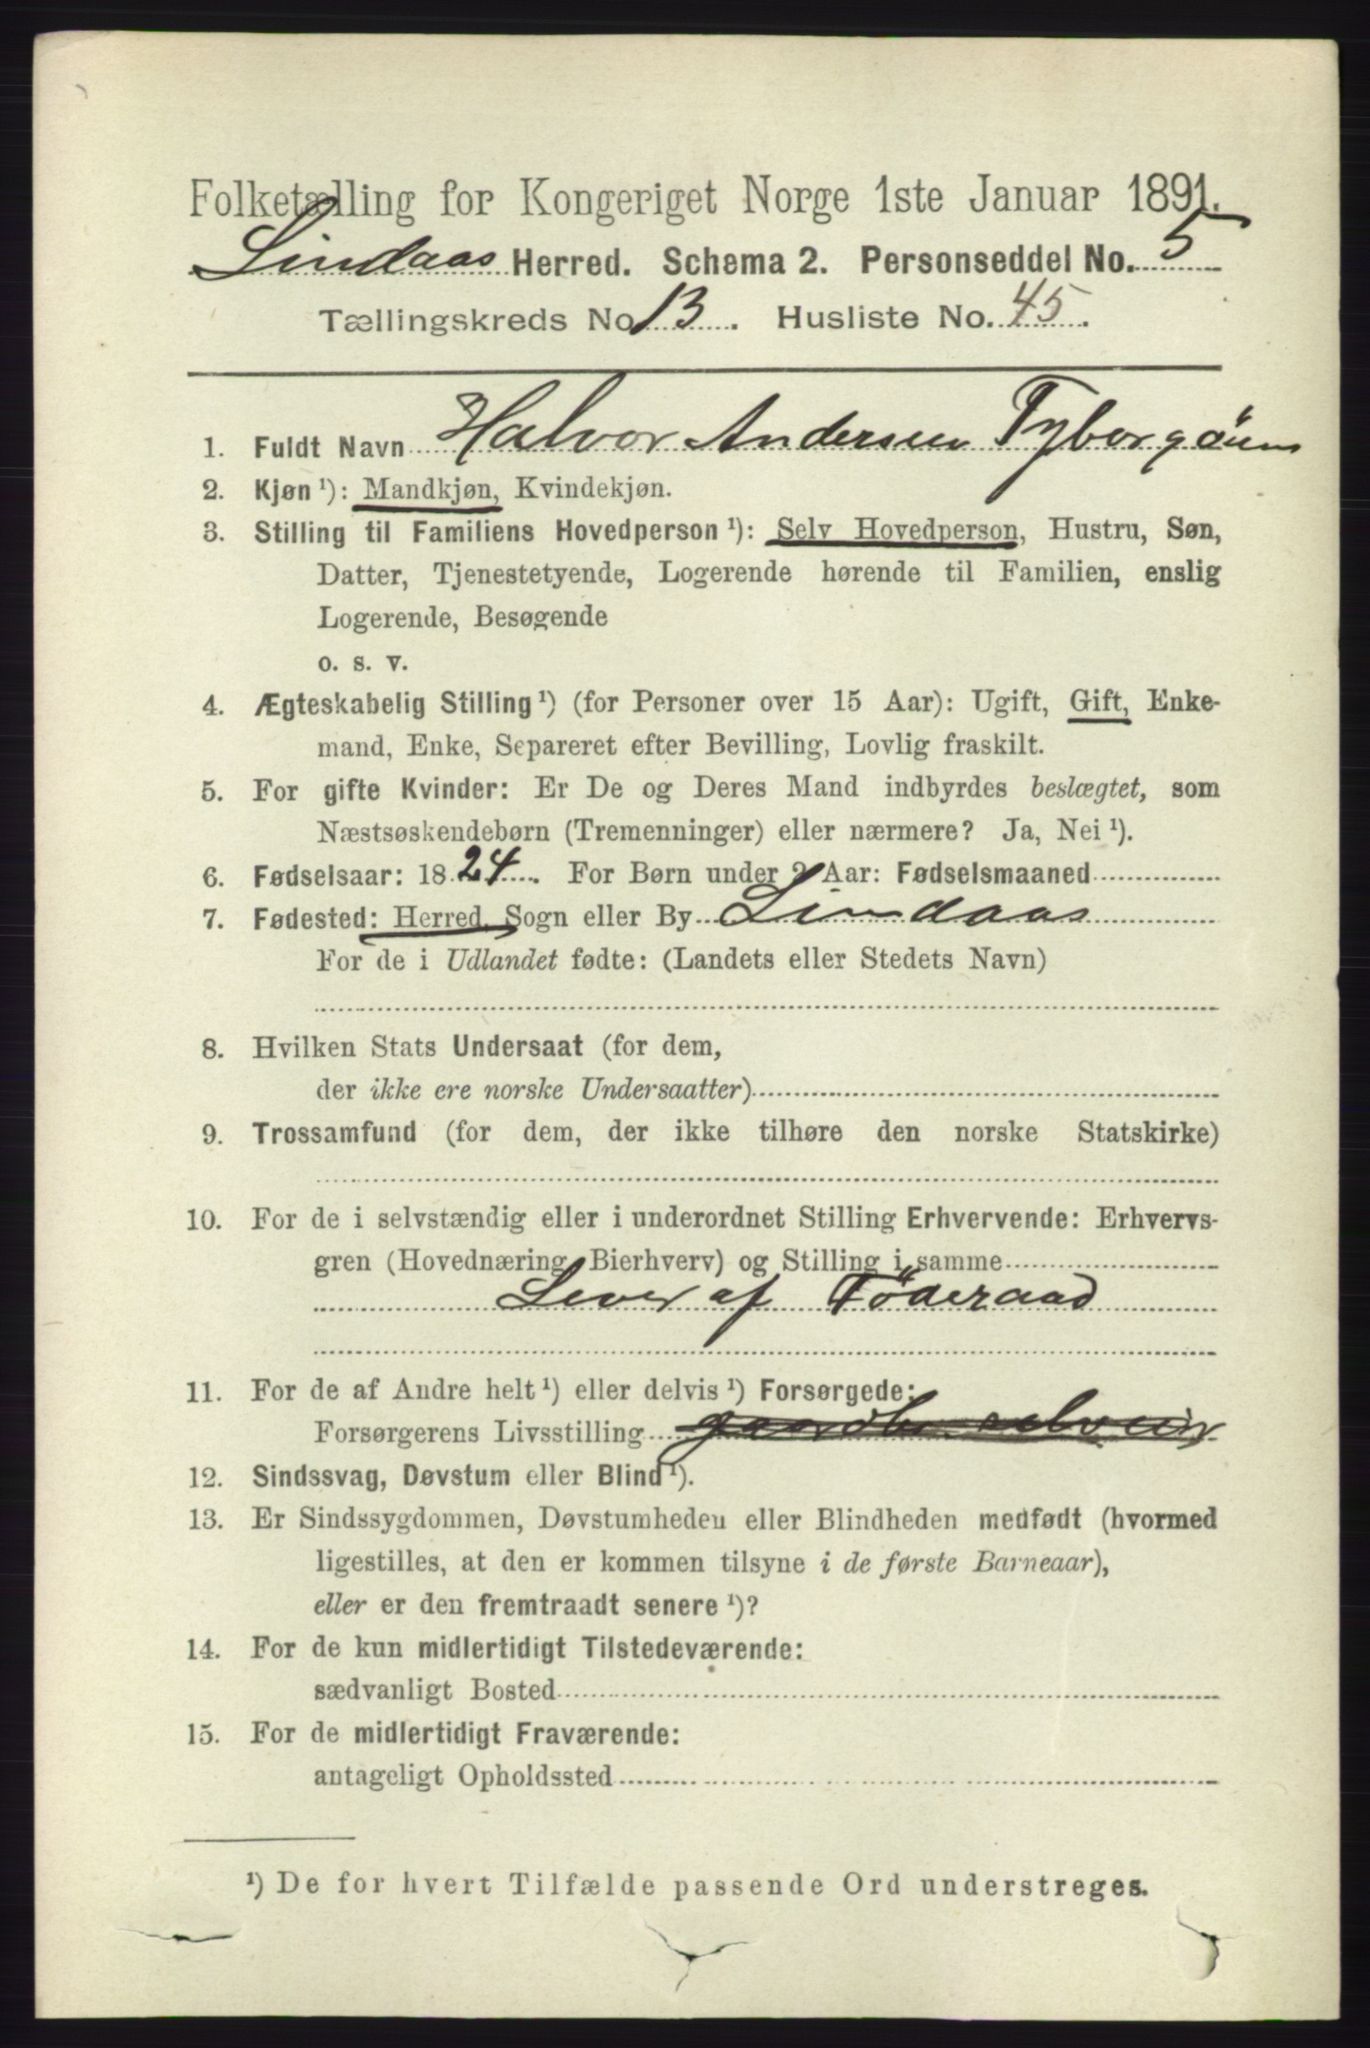 Folketælling for Kongeriget Norge 1ste Januar 1891.
Lindaas Herred. Schema 2. Personseddel No. 5
Tællingskreds No. 13. Husliste No. 45.
1. Fuldt Navn Halvor Andersen
2. Kjøn ¹): Mandkjøn, Kvindekjøn.
3. Stilling til Familiens Hovedperson ¹): Selv Hovedperson, Hustru, Søn,
Datter, Tjenestetyende, Logerende hørende til Familien, enslig
Logerende, Besøgende
o. s. v.
4. Ægteskabelig Stilling ¹) (for Personer over 15 Aar): Ugift, Gift, Enke-
mand, Enke, Separeret efter Bevilling, Lovlig fraskilt.
5. For gifte Kvinder: Er De og Deres Mand indbyrdes beslægtet, som
Næstsøskendebørn (Tremenninger) eller nærmere? Ja, Nei ¹).
6. Fødselsaar: 1824. For Børn under 2 Aar: Fødselsmaaned
7. Fødested: Herred, Sogn eller By Lindaas
For de i Udlandet fødte: (Landets eller Stedets Navn)
8. Hvilken Stats Undersaat (for dem,
der ikke ere norske Undersaatter)
9. Trossamfund (for dem, der ikke tilhøre den norske Statskirke)
10. For de i selvstændig eller i underordnet Stilling Erhvervende: Erhvervs-
gren (Hovednæring, Bierhverv) og Stilling i samme
Lever af Föderaad
11. For de af Andre helt ¹) eller delvis ¹) Forsørgede:
Forsørgerens Livsstilling gaardbr. selveier
12. Sindssvag, Døvstum eller Blind ¹).
13. Er Sindssygdommen, Døvstumheden eller Blindheden medfødt (hvormed
ligestilles, at den er kommen tilsyne i de første Barneaar),
eller er den fremtraadt senere ¹)?
14. For de kun midlertidigt Tilstedeværende:
sædvanligt Bosted
15. For de midlertidigt Fraværende:
antageligt Opholdssted
¹) De for hvert Tilfælde passende Ord understreges.